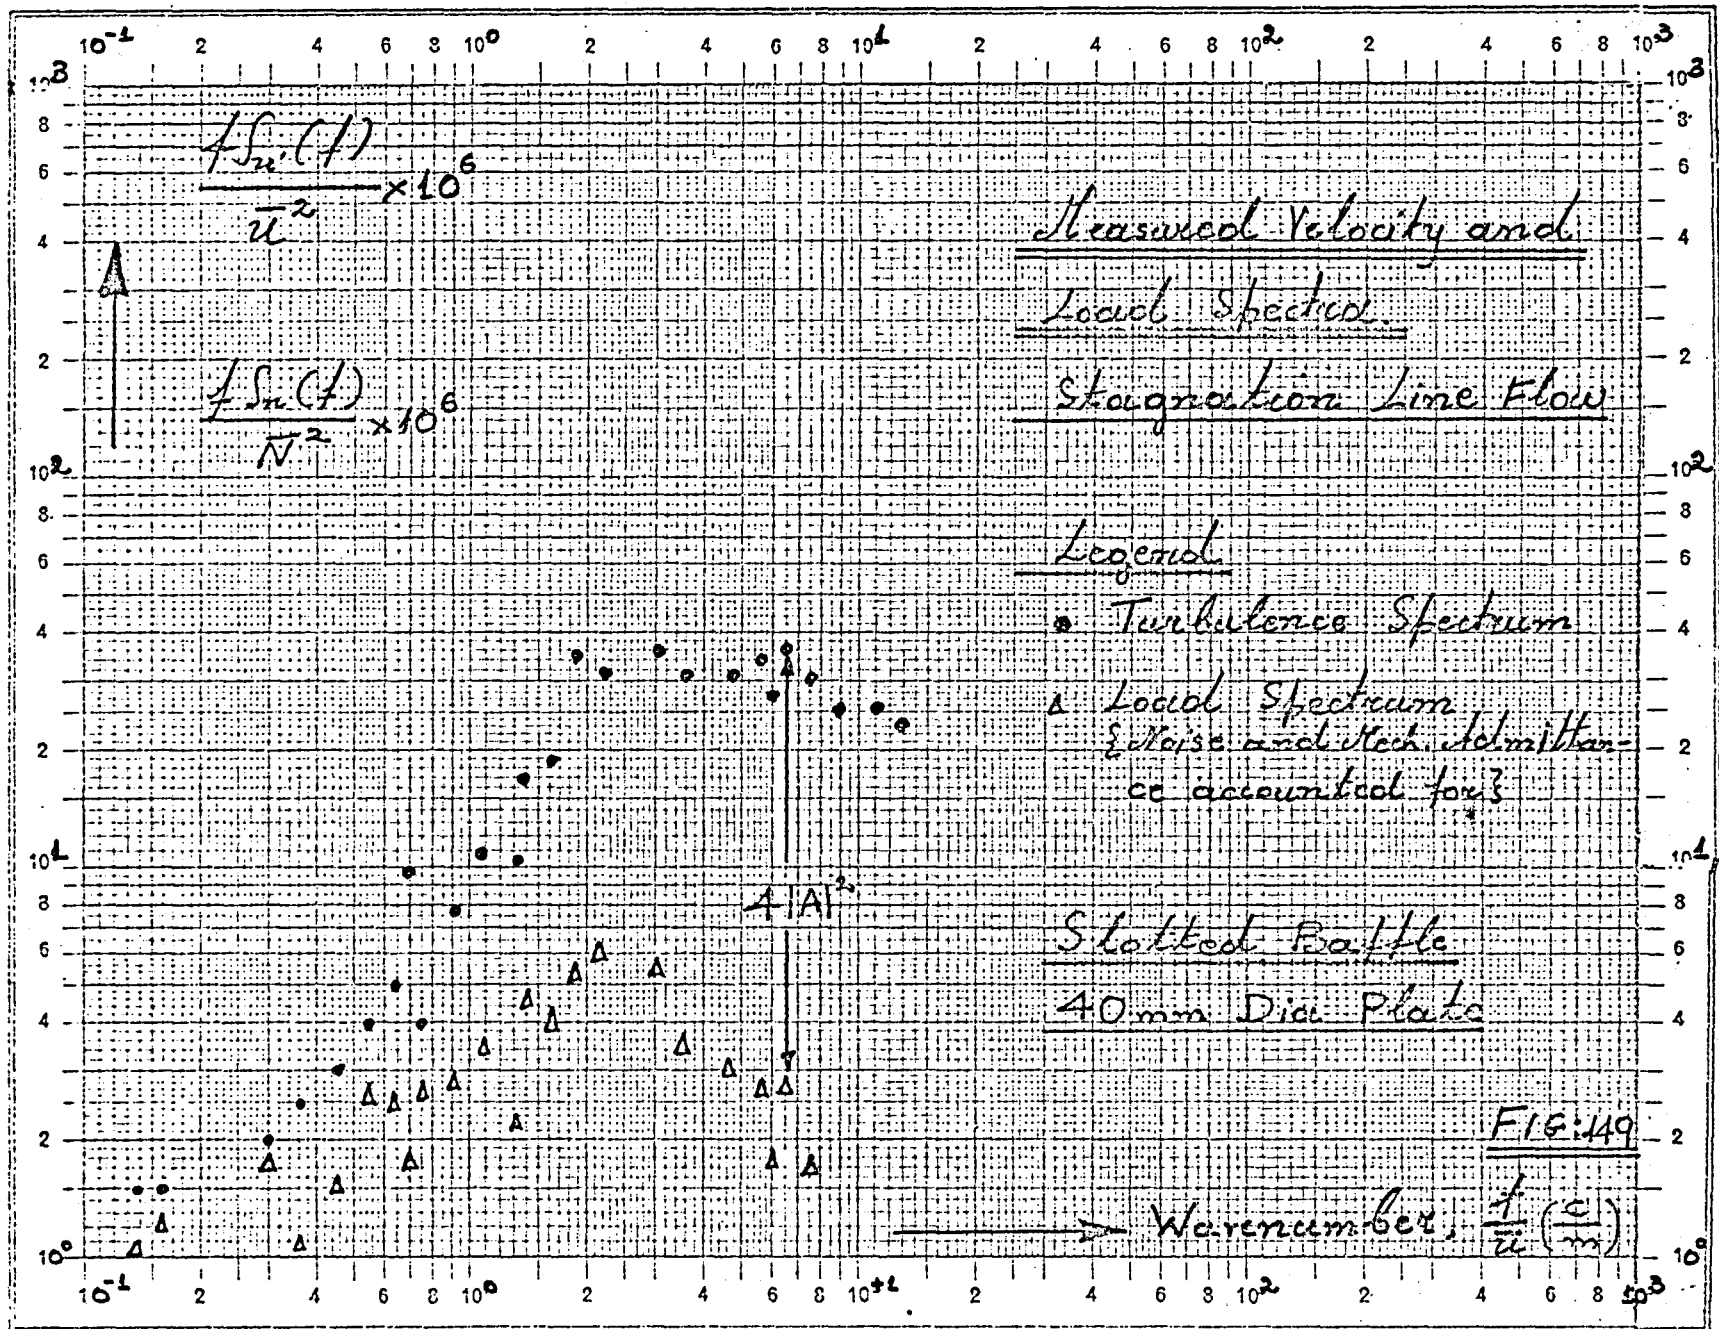 10-1 2 4 6 8 10⁰ 2 4 6 8 10¹ 2 4 6 8 10² 2 4 6 8 10³
10³ 8 6 4 2 10² 8 6 4 2 10¹ 8 6 4 2 10⁰
f Su'(f) / ū² ×10⁶
f Sn(f) / N̄² ×10⁶
Measured Velocity and
Load Spectra.
Stagnation Line Flow
Legend
• Turbulence Spectrum
Δ Load Spectrum
{Noise and Mech. Admittan-
ce accounted for}
4|A|²
Slotted Baffle
40mm Dia Plate
FIG:149
Wavenumber, f/ū (c/m)
10³ 8 6 4 2 10² 8 6 4 2 10¹ 8 6 4 2 10⁰
10-1 2 4 6 8 10⁰ 2 4 6 8 10+1 2 4 6 8 10² 2 4 6 8 10³